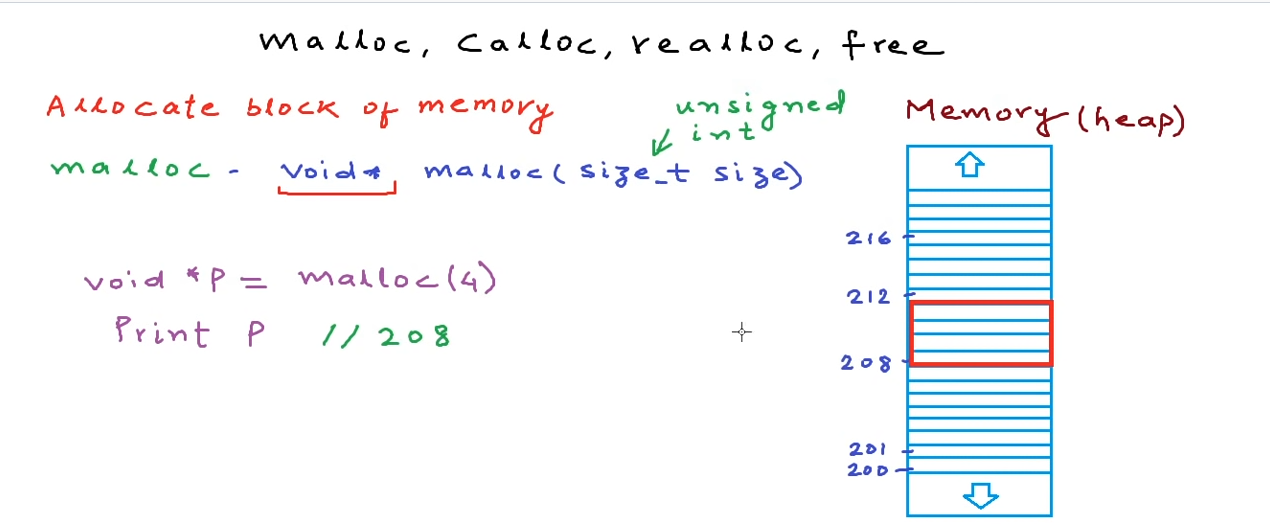 malloc, calloc, realloc, free
Allocate block of memory
unsigned
int
malloc - void* malloc(size_t size)
void *P = malloc(4)
Print P // 208
Memory (heap)
216
212
208
201
200